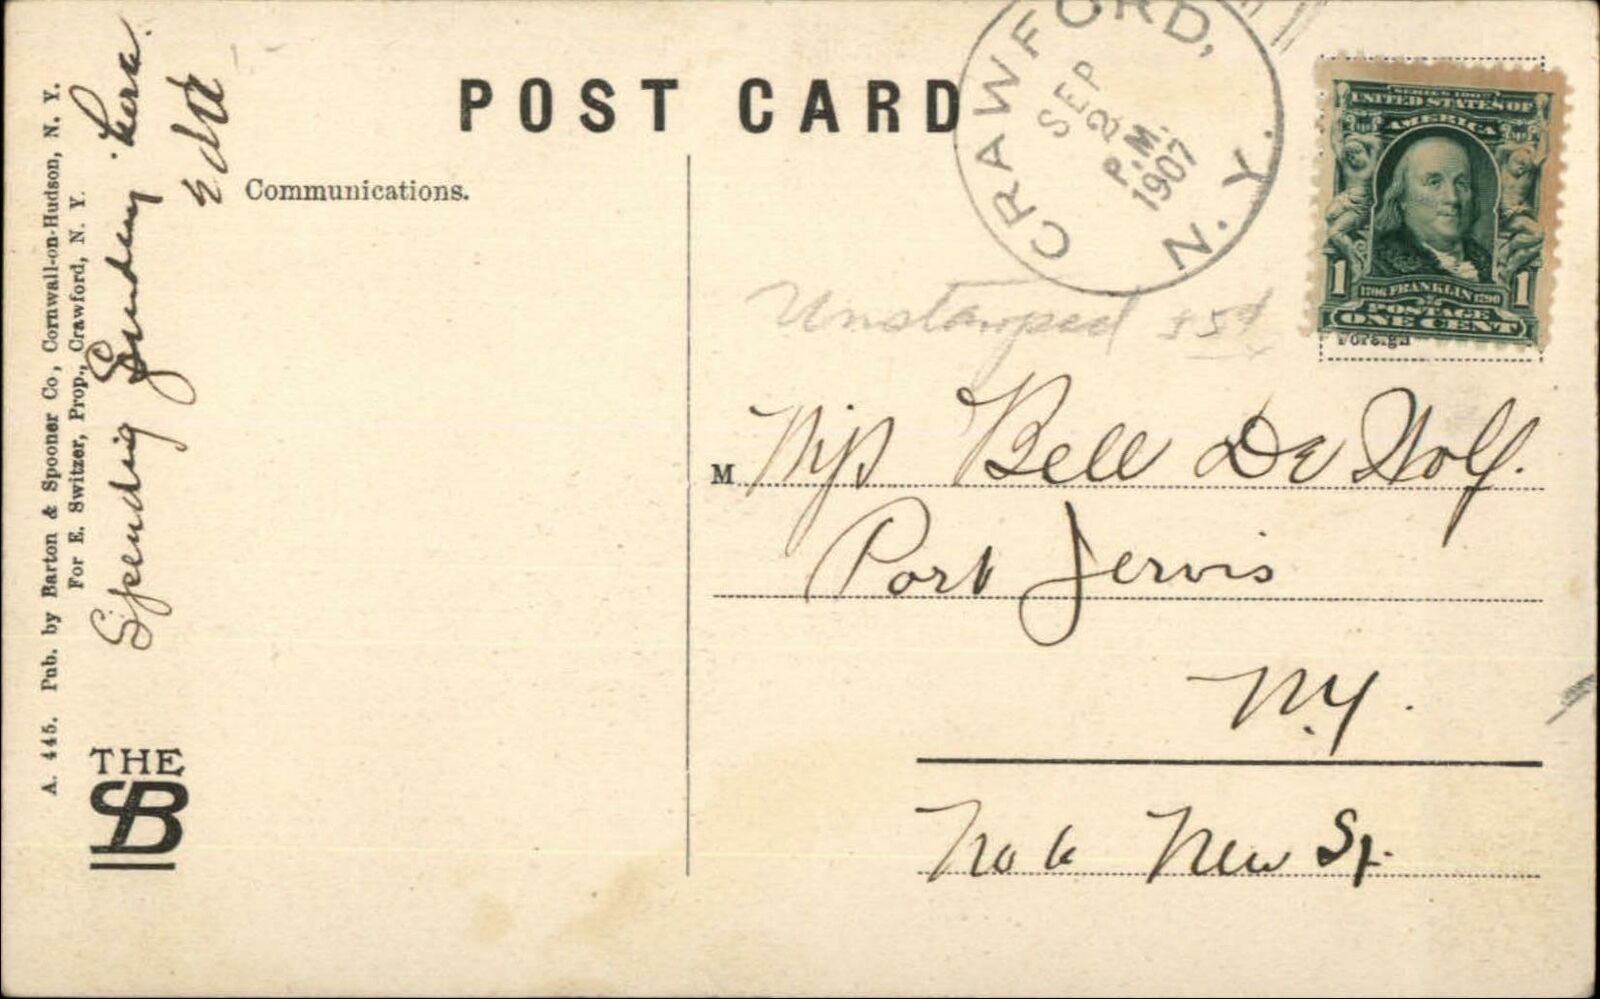 POST CARD
Communications.
CRAWFORD,
N. Y.
SEP
2
P.M.
1907
SERIES 1902
UNITED STATES OF
AMERICA
1 1
1706 FRANKLIN 1790
POSTAGE
ONE CENT
Foreign
Unstamped
M Miss Bell De Wolf.
Port Jervis
N.Y.
No 6 New St.
Spending Sunday here.
A. 445. Pub. by Barton & Spooner Co., Cornwall-on-Hudson, N. Y.
For E. Switzer, Prop., Crawford, N. Y.
THE
SB